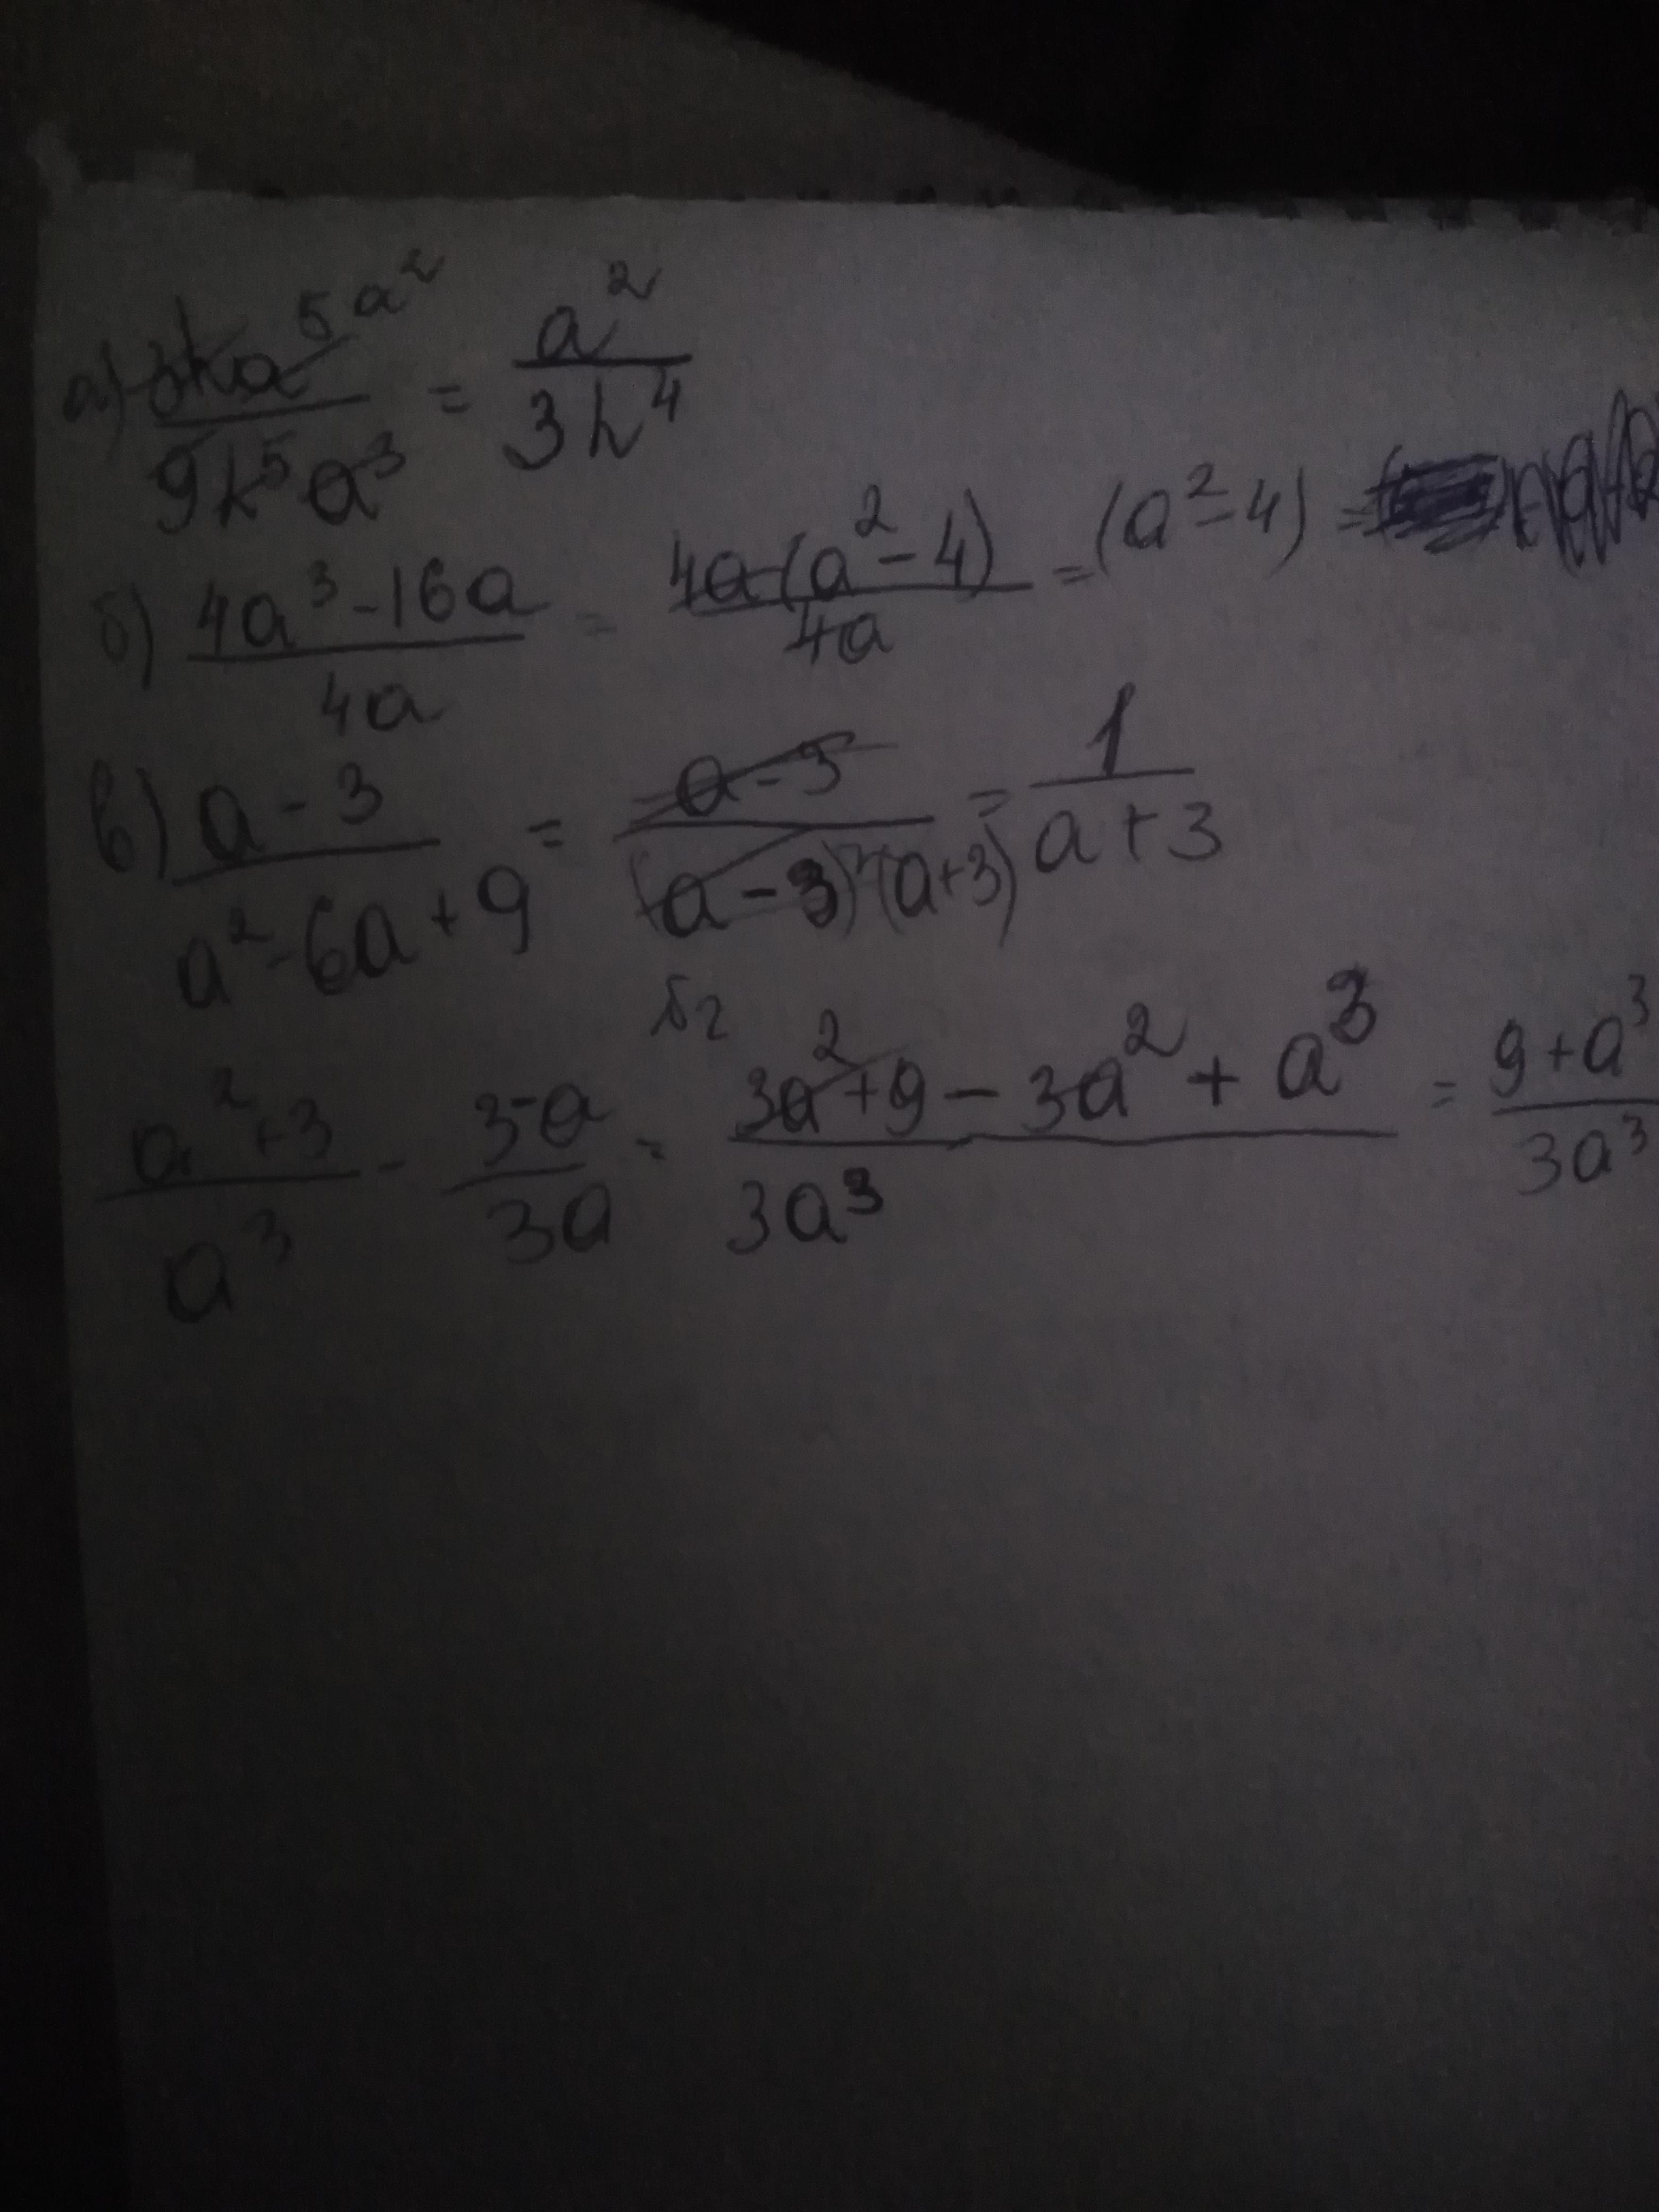 а) 3ka⁵ a² / 9k⁵a³ = a² / 3k⁴
б) 4a³-16a / 4a = 4a(a²-4) / 4a = (a²-4) =
в) a-3 / a²-6a+9 = a-3 / (a-3)²(a+3) = 1 / a+3
№2
a²+3 / a³ - 3-a / 3a = 3a²+9-3a²+a³ / 3a³ = 9+a³ / 3a³